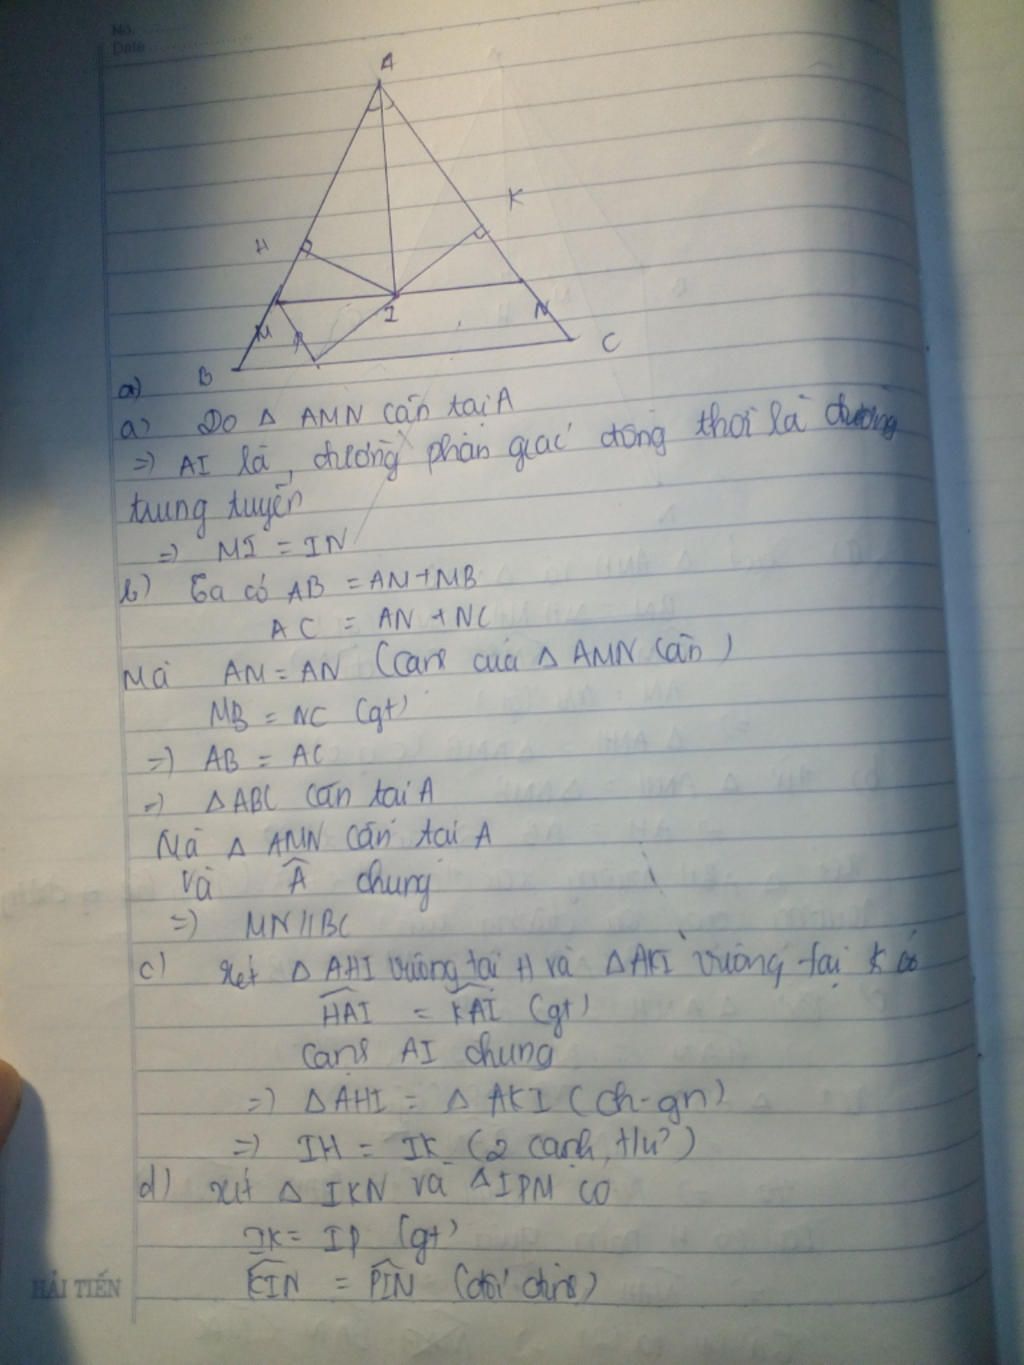 No.
Date
A
K
H
I
M
P
N
B
C
a)
a) Do △ AMN cân tại A
=) AI là đường phân giác đồng thời là đường
trung tuyến
=) MI = IN
b) Ta có AB = AM+MB
AC = AN + NC
Mà AM = AN (cạnh của △ AMN cân)
MB = NC (gt)
=) AB = AC
=) △ABC cân tại A
Mà △ AMN cân tại A
và Â chung
=) MN//BC
c) xét △ AHI vuông tại H và △AKI vuông tại K có
HAI = KAI (gt)
cạnh AI chung
=) △AHI = △ AKI (ch-gn)
=) IH = IK (2 cạnh t/ư)
d) xét △ IKN và △IPM có
IK = IP (gt)
KIN = PIN (đối đỉnh)
HẢI TIẾN